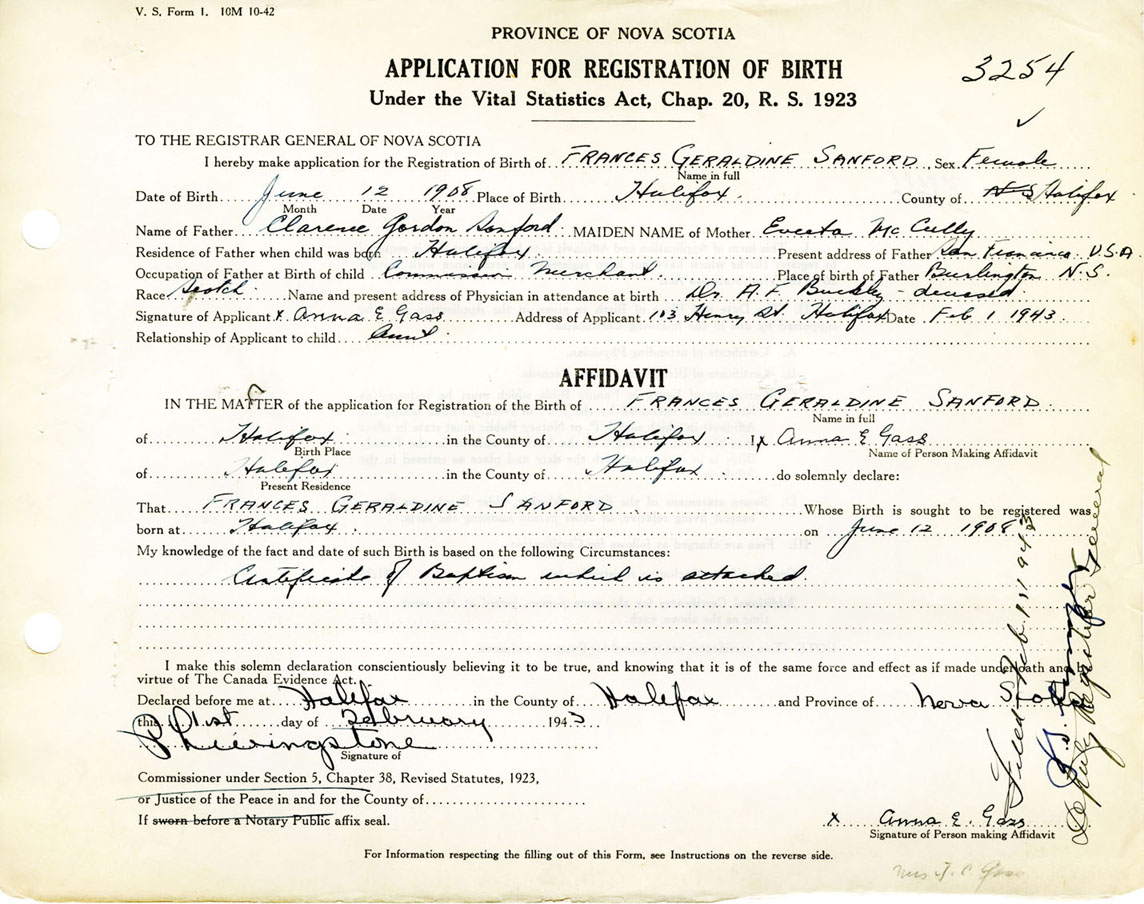 V. S. Form 1. 10M 10-42
PROVINCE OF NOVA SCOTIA
APPLICATION FOR REGISTRATION OF BIRTH
3254
Under the Vital Statistics Act, Chap. 20, R. S. 1923
✓
TO THE REGISTRAR GENERAL OF NOVA SCOTIA
I hereby make application for the Registration of Birth of FRANCES GERALDINE SANFORD Sex Female
Name in full
Date of Birth June 12 1908 Place of Birth Halifax County of N S Halifax
Month Date Year
Name of Father Clarence Gordon Sanford MAIDEN NAME of Mother McCully
Residence of Father when child was born Halifax Present address of Father San Francisco U.S.A.
Occupation of Father at Birth of child Commission Merchant Place of birth of Father Burlington N.S.
Race Scotch Name and present address of Physician in attendance at birth Dr. A. F. Buckley - deceased
Signature of Applicant x Anna E Gass Address of Applicant 103 Henry St. Halifax Date Feb 1 1943
Relationship of Applicant to child Aunt
AFFIDAVIT
IN THE MATTER of the application for Registration of the Birth of FRANCES GERALDINE SANFORD
Name in full
of Halifax in the County of Halifax I, x Anna E Gass
Birth Place Name of Person Making Affidavit
of Halifax in the County of Halifax do solemnly declare:
Present Residence
That FRANCES GERALDINE SANFORD Whose Birth is sought to be registered was
born at Halifax on June 12 1908
My knowledge of the fact and date of such Birth is based on the following Circumstances:
Certificate of Baptism which is attached.
I make this solemn declaration conscientiously believing it to be true, and knowing that it is of the same force and effect as if made under oath and by
virtue of The Canada Evidence Act.
Declared before me at Halifax in the County of Halifax and Province of Nova Scotia
this 1st day of February 1943
P Livingstone
Signature of
Commissioner under Section 5, Chapter 38, Revised Statutes, 1923,
or Justice of the Peace in and for the County of
If sworn before a Notary Public affix seal.
x Anna E. Gass
Signature of Person making Affidavit
For Information respecting the filling out of this Form, see Instructions on the reverse side.
Mrs J. C. Gass
Filed Feb. 1943
Deputy Registrar General